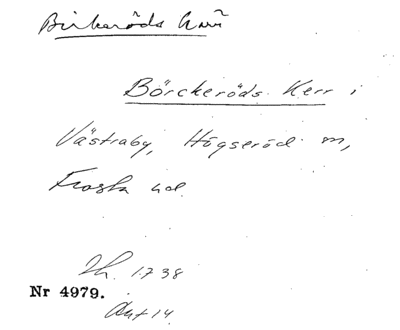 Birkeröds
Börckeröds Kerr i
Västraby, Högseröd m,
Frosta hd.
Lh. 1738
Nr 4979.
Akt 14